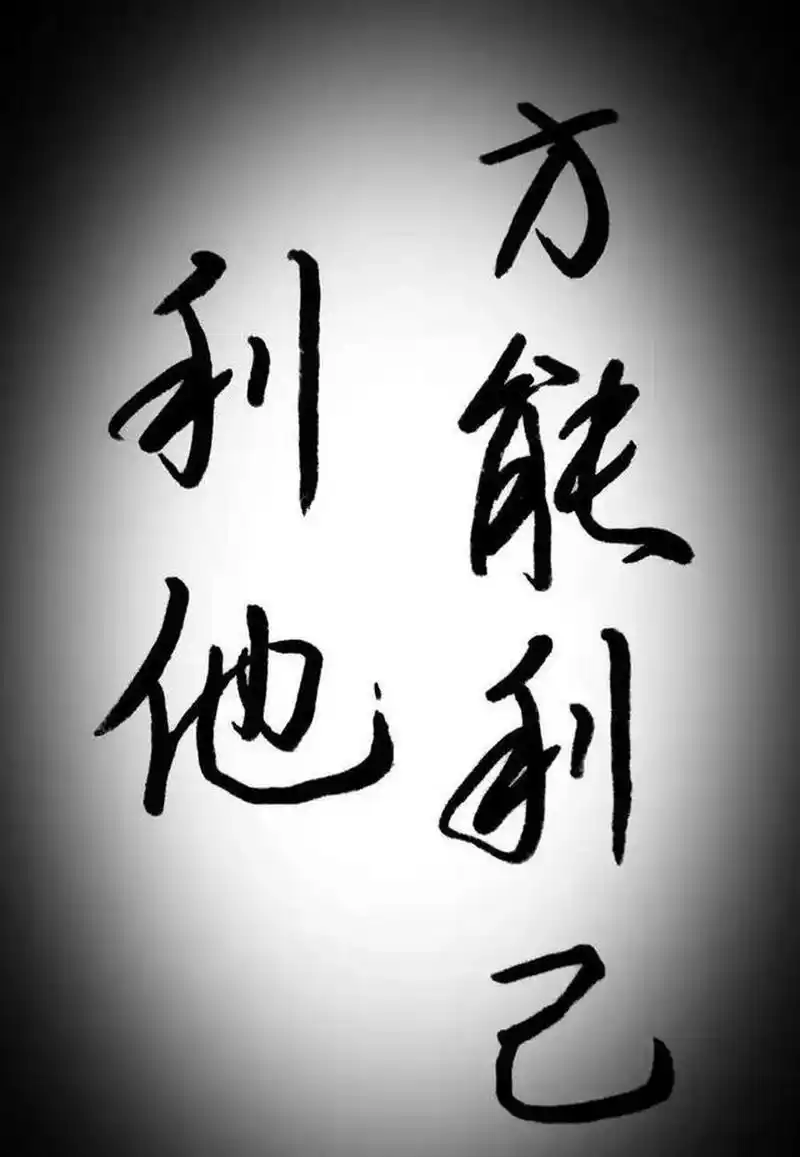 利他
方能利己